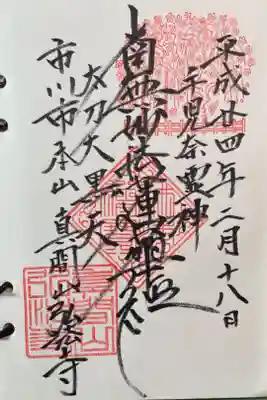 平成廿四年二月十八日
手児奈霊神
南無妙法蓮華経
太刀大黒天
市川市本山 真間山弘法寺